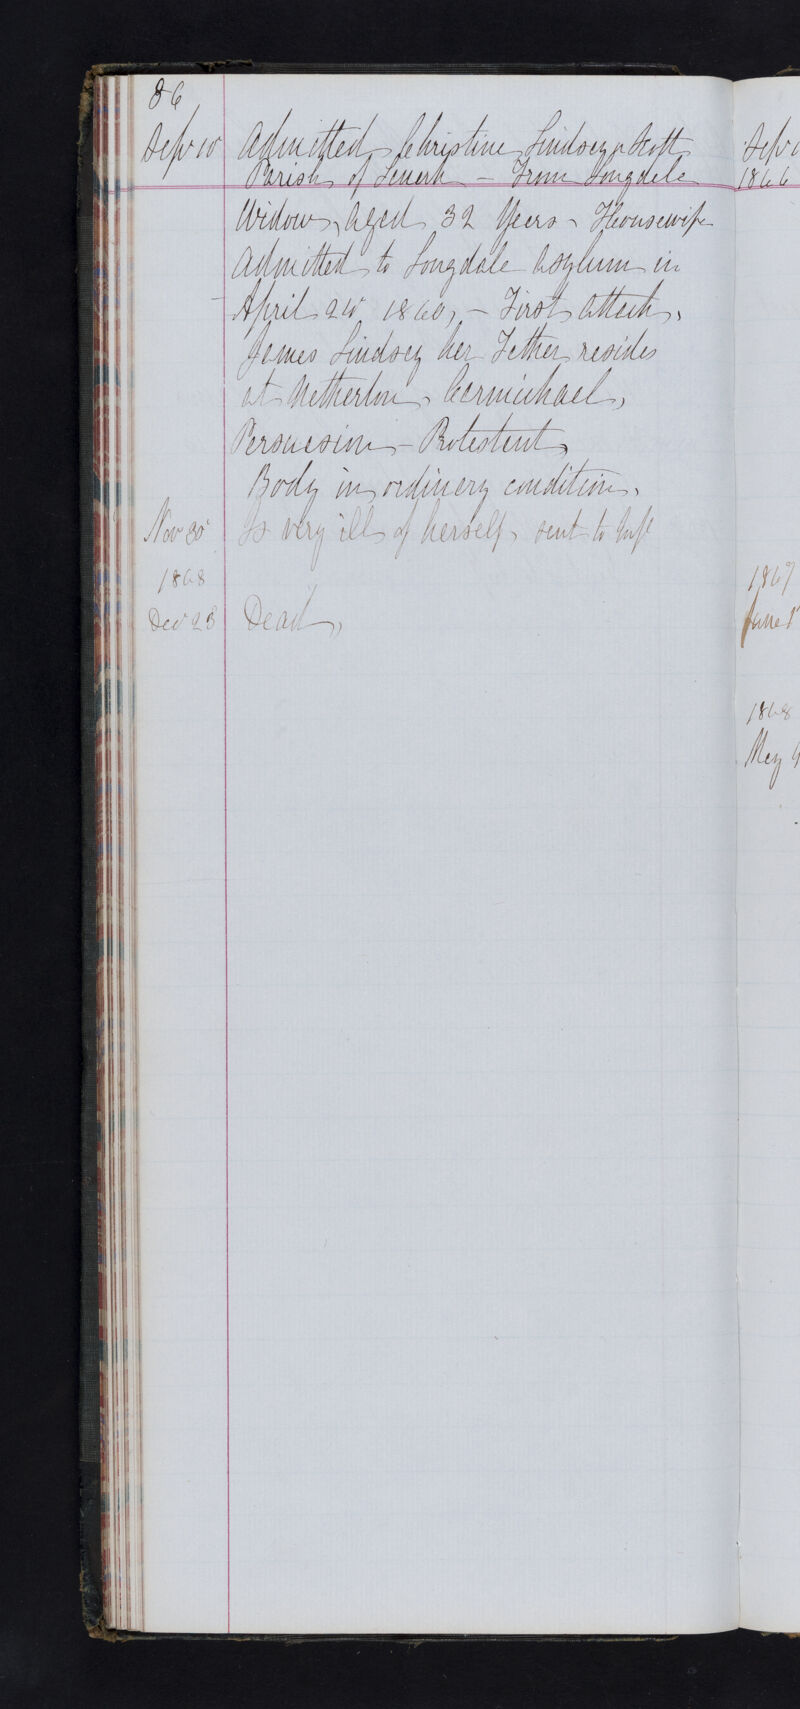 86
Sepr 10 Admitted Christina Lindsay or Scott
Parish of Lanark - From Longdale
Widow, Aged 32 Years - Housewife
Admitted to Longdale Asylum in
April 24 1860, - First attack,
James Lindsay her Father resides
at Netherton, Carmichael,
Persuasion - Protestant,
Body in ordinary condition,
Nov 30 Is very ill of herself, sent to Inf
1868
Decr 23 Dead,
Sepr
1866
1867
June
1868
May